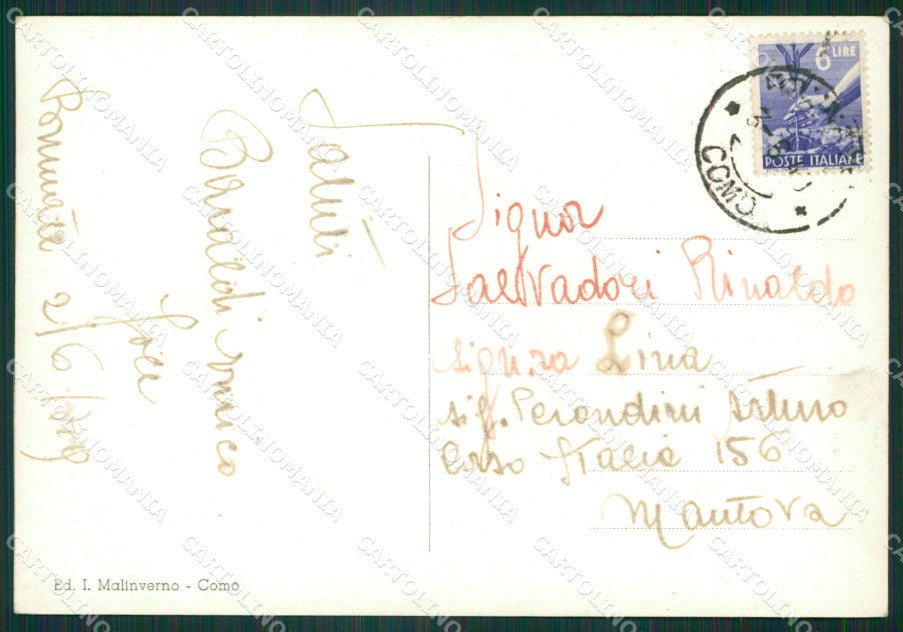 Saluti
Bonaldi Enrico
Brunate 2/6/1949
6 LIRE
POSTE ITALIANE
COMO
Signor
Salvadori Rinaldo
signora Lina
sig. Perondini Arturo
Corso Italia 156
Mantova
Ed. I. Malinverno - Como
CARTOLINOMANIA